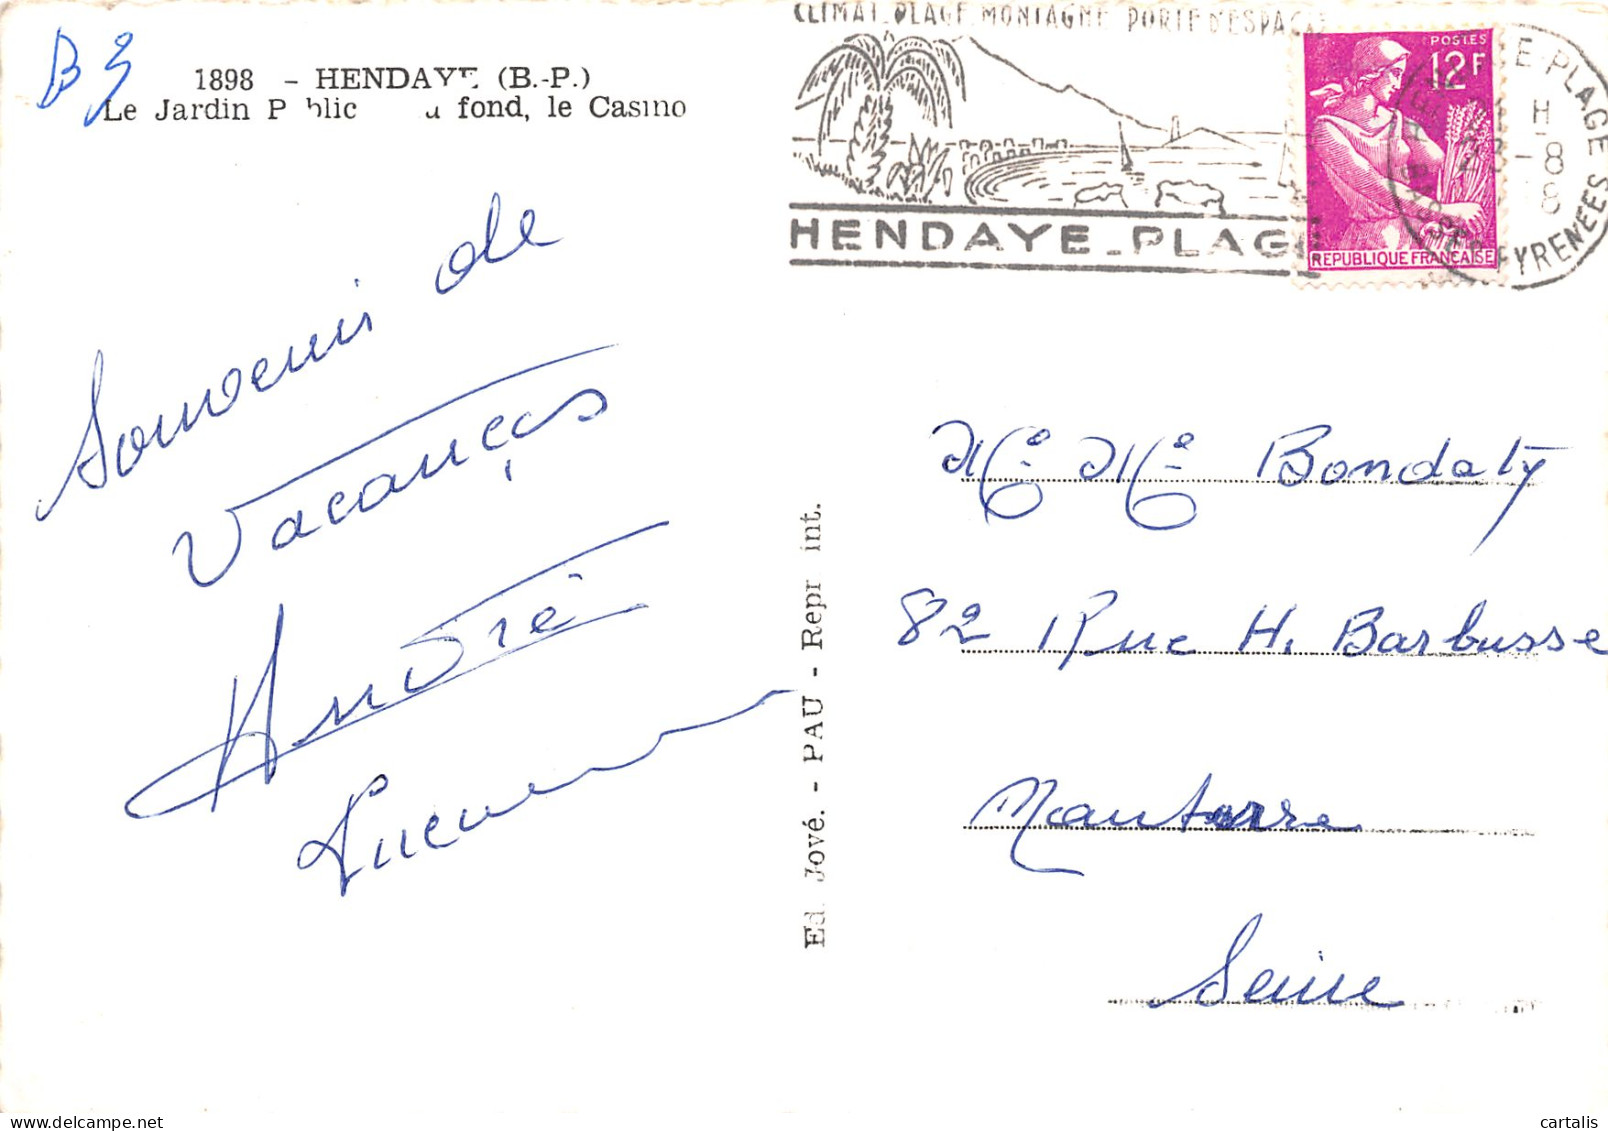 B
1898 - HENDAYE (B.-P.)
Le Jardin P blic u fond, le Casino
CLIMAT PLAGE MONTAGNE PORTE D'ESPAGNE
HENDAYE-PLAGE
POSTES
12F
REPUBLIQUE FRANCAISE
E-PLAGE
H
-8
PYRENEES
Souvenir de
Vacançes
André
Lucienne
Ed. Jové. - PAU - Repr int.
Mr Me Bondaty
82 Rue H. Barbusse
Nanterre
Seine
cartalis